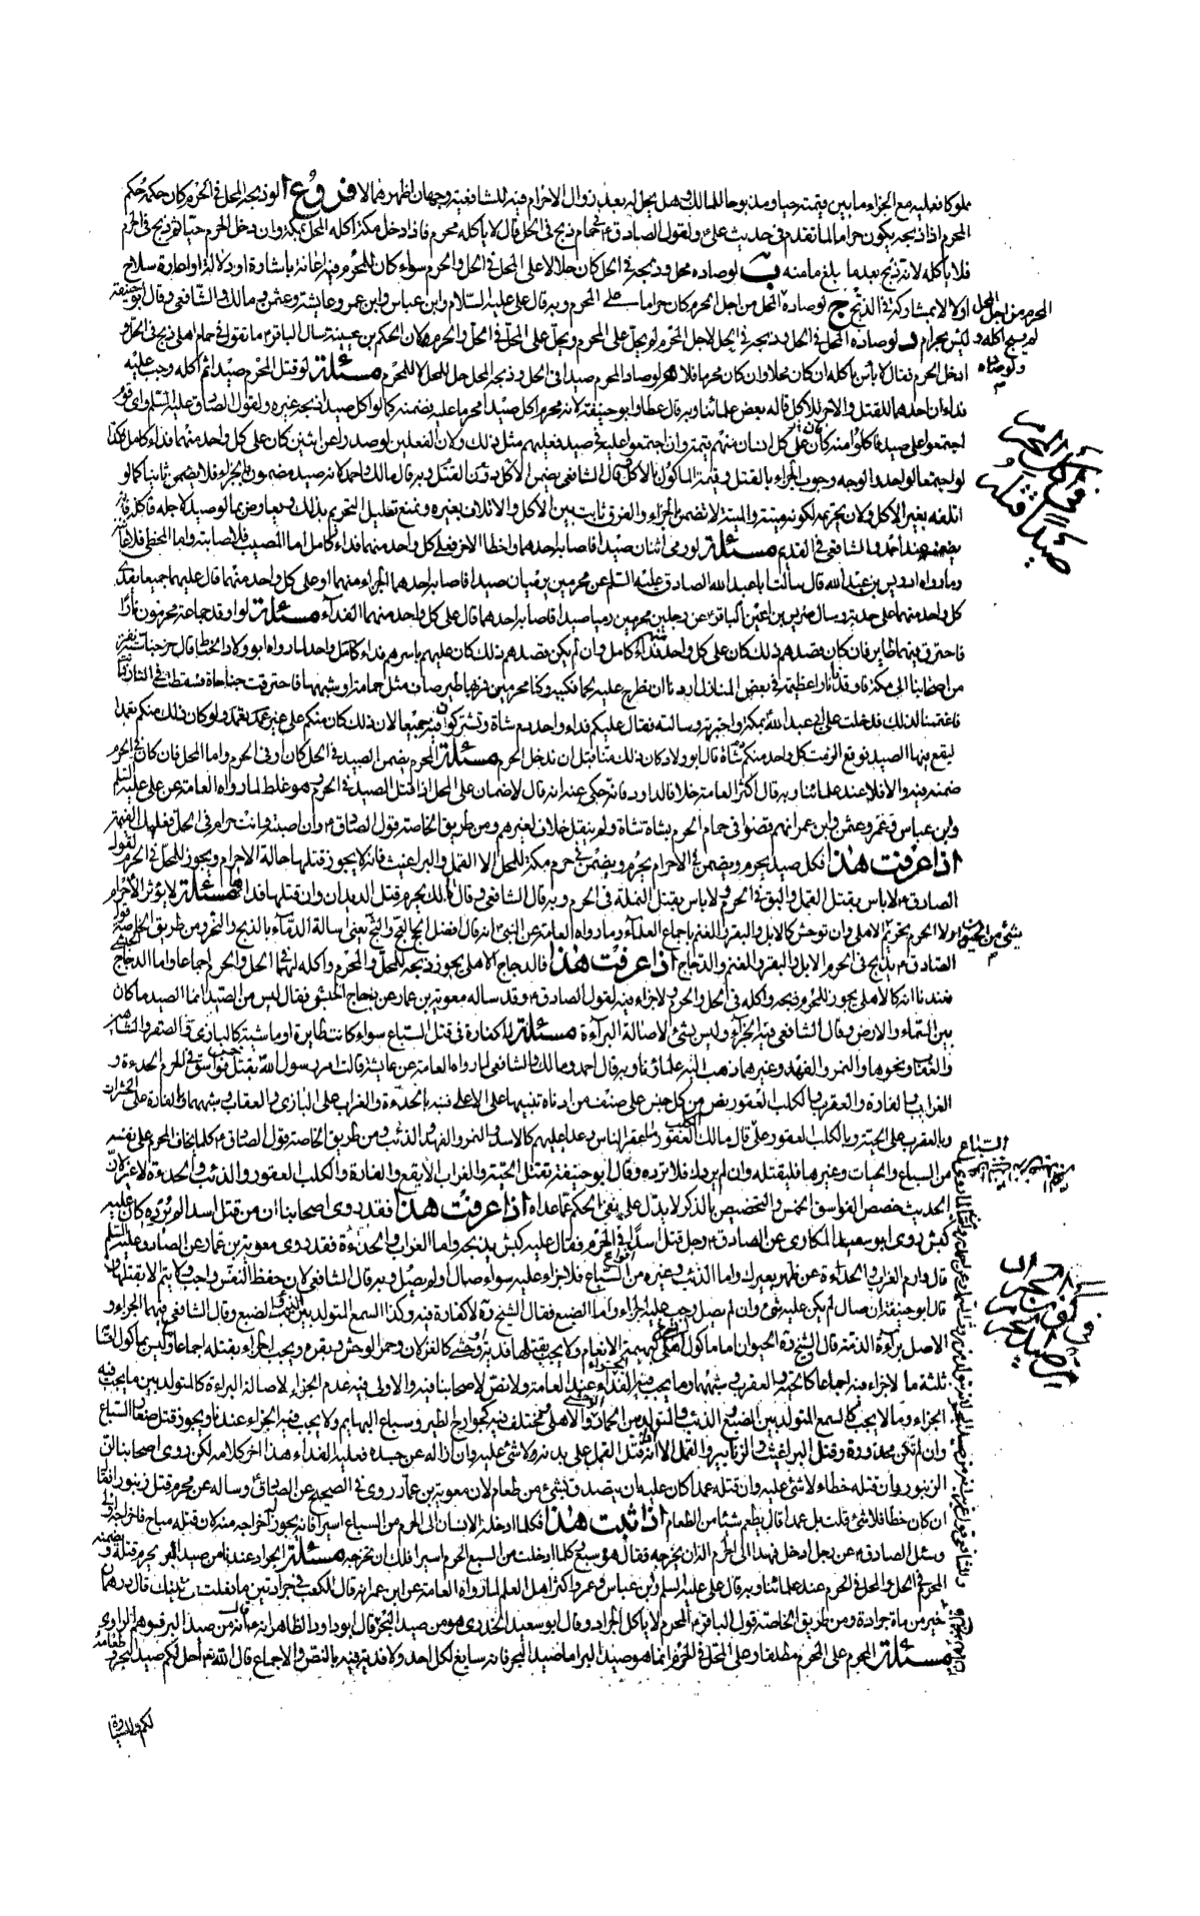 مملوكا فعليه مع الجزاء ما بين قيمته حيا ومذبوحا للمالك وهل يحل له بعد زوال الاحرام فيه للشافعية وجهان اظهرهما لا فروع ا لو ذبحه المحل في الحرم كان حكمه حكم
المحرم اذا ذبحه يكون حراما لما تقدم في حديث علي ع ولقول الصادق ع في حمام ذبح في الحل قال لا ياكله محرم فاذا دخل مكة اكله المحل بمكة وان دخل الحرم حيا ثم ذبح في الحرم
فلا ياكله لانه ذبح بعد ما بلغ مامنه ب لو صاده محل وذبحه في الحل كان حلالا على المحل في الحل والحرم سواء كان للمحرم فيه اعانة باشارة او دلالة او اعارة سلاح
اولا لا بمشاركة في الذبح ج لو صاده المحل من اجل المحرم كان حراما على المحرم وبه قال علي عليه السلام وابن عباس وابن عمر وعايشة وعثمن ومالك والشافعي وقال ابو حنيفة
ليس بحرام د لو صاده المحل في الحل وذبحه في الحل لاجل المحرم لم يحل على المحرم ويحل على المحل في الحل والحرم وكان الحكم بن عيينة سال الباقر ع ما تقول في حمام اهلي ذبح في الحل و
ادخل الحرم فقال لا باس باكله ان كان محلا وان كان محرما فلا ه لو صاد المحرم صيدا في الحل وذبحه المحل حل للمحل لا للمحرم مسئلة لو قتل المحرم صيدا ثم اكله وجب عليه
فداءان احدهما للقتل والاخر للاكل قاله بعض علمائنا وبه قال عطا وابو حنيفة لانه محرم اكل صيدا محرما عليه فضمنه كما لو اكل صيدا ذبحه غيره ولقول الصادق عليه السلم واي قوم
اجتمعوا على صيد فاكلوا منه فان على كل انسان منهم قيمته وان اجتمعوا عليه في صيد فعليهم مثل ذلك ولان الفعلين لو صدرا عن اثنين كان على كل واحد منهما فداء كامل فكذا
لو اجتمعا لواحد والوجه وجوب الجزاء بالقتل وقيمة الماكول بالاكل وقال الشافعي يضمن الاكل دون القتل وبه قال مالك واحمد لانه صيد مضمون بالجزاء فلا يضمن ثانيا كما لو
اتلفه بغير الاكل ولان تحريمه لكونه ميتة والميتة لا تضمن بالجزاء والفرق ثابت بين الاكل والاتلاف بغيره ونمنع تعليل التحريم بذلك ويعارض بما لو صيد لاجله فاكله فانه
يضمنه عند احمد والشافعي في القديم مسئلة لو رمى اثنان صيدا فاصابه احدهما واخطا الاخر فعلى كل واحد منهما فداء كامل اما المصيب فلاصابته واما المخطي فلاعانته
وما رواه ادريس بن عبد الله قال سالت ابا عبد الله الصادق عليه السلم عن محرمين يرميان صيدا فاصابه احدهما الجزاء بينهما او على كل واحد منهما قال عليهما جميعا يفدي
كل واحد منهما على حدة وسال ضريس بن اعين الباقر ع عن رجلين محرمين رميا صيدا فاصابه احدهما قال على كل واحد منهما الفداء مسئلة لو اوقد جماعة محرمون نارا
فاحترق فيها طاير فان كان قصدهم ذلك كان على كل واحد منهم فداء كامل وان لم يكن قصدهم ذلك كان عليهم باسرهم فداء كامل واحد لما رواه ابو ولاد الحناط قال خرجنا ستة نفر
من اصحابنا الى مكة فاوقدنا نارا عظيمة في بعض المنازل اردنا ان نطرح عليها لحما نكببه وكنا محرمين فمر بها طير صاف مثل حمامة او شبهها فاحترقت جناحاه فسقط في النار فمات
فاغتممنا لذلك فدخلت على ابي عبد الله ع بمكة واخبرته وسالته فقال عليكم فداء واحد دم شاة وتشتركون فيه جميعا لان ذلك كان منكم على غير تعمد ولو كان ذلك منكم تعمدا
ليقع فيها الصيد فوقع الزمت كل واحد منكم شاة قال ابو ولاد كان ذلك منا قبل ان ندخل الحرم مسئلة المحرم يضمن الصيد في الحل كان او في الحرم واما المحل فان كان في الحرم
ضمنه فيه والا فلا عند علمائنا وبه قال اكثر العامة خلافا لداود فانه حكي عنه انه قال لا ضمان على المحل اذا قتل الصيد في الحرم وهو غلط لما رواه العامة عن علي عليه السلم
وابن عباس وعمر وعثمن وابن عمر انهم قضوا في حمام الحرم بشاة شاة ولم ينقل خلاف لغيرهم ومن طريق الخاصة قول الصادق ع وان اصبته وانت حرام في الحل فعليك القيمة
اذا عرفت هذا فكل صيد يحرم ويضمن في الاحرام يحرم ويضمن في حرم مكة للمحل الا القمل والبراغيث فانه لا يجوز قتلها حالة الاحرام ويجوز للمحل في الحرم لقول
الصادق ع لا باس بقتل القمل والبق في الحرم ولا باس بقتل النملة في الحرم وبه قال الشافعي وقال مالك يحرم قتل الديدان وان قتلها فداه مسئلة لا يؤثر الاحرام
ولا الحرم تحريم الاهلي وان توحش كالابل والبقر والغنم باجماع العلماء وما رواه العامة عن النبي ص انه قال افضل الحج العج والثج يعني اسالة الدماء بالذبح والنحر ومن طريق الخاصة قول
الصادق ع يذبح في الحرم الابل والبقر والغنم والدجاج اذا عرفت هذا فالدجاج الاهلي يجوز ذبحه للمحل والمحرم واكله لهما في الحل والحرم اجماعا واما الدجاج الحبشي
فعندنا انه كالاهلي يجوز للمحرم ذبحه واكله في الحل والحرم ولا جزاء فيه لقول الصادق ع وقد ساله معوية بن عمار عن دجاج الحبش فقال ليس من الصيد انما الصيد ما كان
بين السماء والارض وقال الشافعي فيه الجزاء وليس بشئ لاصالة البراءة مسئلة لا كفارة في قتل السباع سواء كانت طايرة او ماشية كالبازي والصقر والشاهين
والعقاب ونحوها والنمر والفهد وغيرهما ذهب اليه علماؤنا وبه قال احمد ومالك والشافعي لما رواه العامة عن عايشة قالت امر رسول الله ص بقتل خمس فواسق في الحرم الحداة و
الغراب والفارة والعقرب والكلب العقور نص من كل جنس على صنف من ادناه تنبيها على الاعلى فنبه بالحداة والغراب على البازي والعقاب وشبههما والفارة على الحشرات
وبالعقرب على الحية وبالكلب العقور على السباع قال مالك الكلب العقور ما عقر الناس وعدا عليهم كالاسد والنمر والفهد والذئب ومن طريق الخاصة قول الصادق ع كلما يخاف المحرم على نفسه
من السباع والحيات وغيرها فليقتله وان لم يردك فلا ترده وقال ابو حنيفة تقتل الحية والغراب الابقع والفارة والكلب العقور والذئب والحداة لا غير لان
الحديث خصص الفواسق الخمس والتخصيص بالذكر لا يدل على نفي الحكم عما عداه اذا عرفت هذا فقد روى اصحابنا ان من قتل اسدا لم يرده كان عليه
كبش روى ابو سعيد المكاري عن الصادق ع رجل قتل اسدا في الحرم فقال عليه كبش يذبحه واما الغراب والحداة فقد روى معوية بن عمار عن الصادق عليه السلم
قال وارم الغراب والحداة عن ظهر بعيرك واما الذئب وغيره من انواع السباع فلا جزاء عليه سواء صال او لم يصل وبه قال الشافعي لان حفظ النفس واجب ولا يتم الا بقتلها و
قال ابو حنيفة ان صال لم يكن عليه شئ وان لم يصل وجب عليه الجزاء واما الضبع فقال الشيخ ره لا كفارة فيه وكذا السمع المتولد بين الذئب والضبع وقال الشافعي فيهما الجزاء و
الاصل براءة الذمة قال الشيخ ره الحيوان اما ماكول انسي كبهيمة الانعام ولا يجب بقتلها فدية او وحشي كالغزلان وحمر الوحش وبقره ويجب الجزاء بقتله اجماعا وليس بماكول اقسامه
ثلثة ما لا جزاء فيه اجماعا كالحية والعقرب وشبههما وما يجب فيه الجزاء عند العامة ولا نص لاصحابنا فيه والاولى فيه عدم الجزاء لاصالة البراءة كالمتولد بين ما يجب فيه
الجزاء وما لا يجب كالسمع المتولد بين الضبع والذئب والمتولد بين الحمار الوحشي والاهلي ومختلف فيه كجوارح الطير وسباع البهايم ولا يجب فيه الجزاء عندنا ويجوز قتل صغار السباع
وان لم تكن محذورة وقتل البراغيث والزنابير والقمل الا انه اذا قتل القمل على بدنه فلا شئ عليه وان ازاله عن جسده فعليه الفداء هذا اخر كلامه لكن روى اصحابنا ان
الزنبور ان قتله خطاء لا شئ عليه وان قتله عمدا كان عليه ان يتصدق بشئ من طعام لان معوية بن عمار روى في الصحيح عن الصادق ع وساله عن محرم قتل زنبورا فقال
ان كان خطا فلا شئ قلت بل عمدا قال يطعم شيئا من الطعام اذا ثبت هذا فكلما ادخله الانسان الى الحرم من السباع اسيرا فانه يجوز اخراجه منه كان قتله مباح فاخراجه اولى
وسئل الصادق ع عن رجل ادخل فهدا الى الحرم اله ان يخرجه فقال هو سبع وكلما ادخلت من السبع الحرم اسيرا فلك ان تخرجه مسئلة الجراد عندنا من صيد البر يحرم قتله ويضمنه
المحرم في الحل والمحل في الحرم عند علمائنا وبه قال علي عليه السلم وابن عباس وعمر واكثر اهل العلم لما رواه العامة عن ابن عمر انه قال لكعب في جرادتين ما فعلت في تينك قال درهمان
خير من مائة جرادة ومن طريق الخاصة قول الباقر ع المحرم لا ياكل الجراد وقال ابو سعيد الخدري هو من صيد البحر قال ابو داود الظاهر انه من صيد البر فوهم الراوي
مسئلة المحرم على المحرم مطلقا وعلى المحل في الحرم انما هو صيد البر اما صيد البحر فانه سايغ لكل احد ولا فدية فيه بالنص والاجماع قال الله تع احل لكم صيد البحر وطعامه
المحرم من اجل المحل
لم يبح اكله و
ولو صاده
في اكل المحرم
صيدا قتله
شئ من الحيوان
السباع
لكم وللسيارة